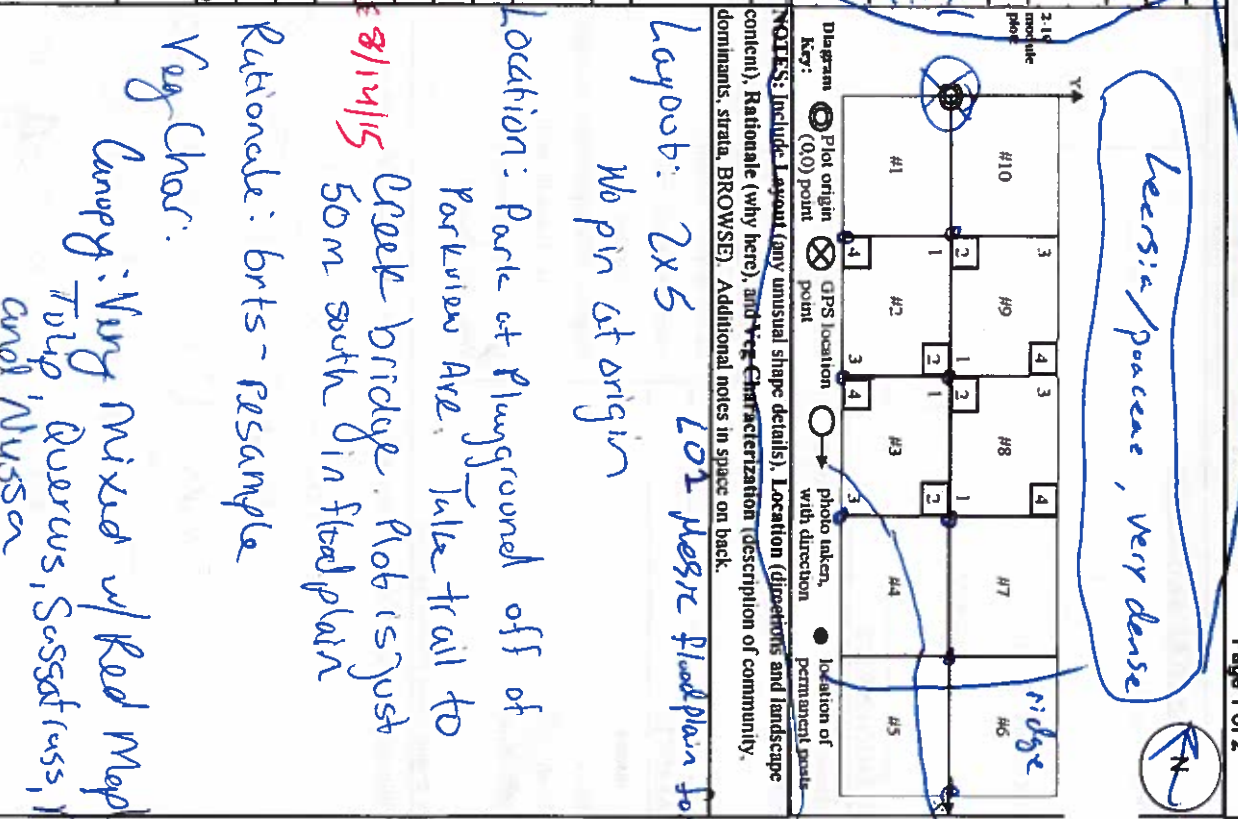 Page 1 of 2
Leersia/poaceae, very dense
N
2-10
module
plot
Y
#10
3
#9
4
3
#8
4
#7
#6
ridge
2
1
2
1
1
2
1
2
#1
4
#2
3
4
#3
3
#4
#5
Diagram Key:
Plot origin (0,0) point
GPS location point
photo taken, with direction
location of permanent posts
NOTES: Include Layout (any unusual shape details), Location (directions and landscape
content), Rationale (why here), and Veg Characterization (description of community,
dominants, strata, BROWSE). Additional notes in space on back.
Layout: 2x5
mesic floodplain to
No pin at origin
Location: Park at Playground off of
Parkview Ave. Take trail to
8/14/15 Creek bridge. Plot is just
50m south in floodplain
Rationale: brts - resample
Veg Char:
Canopy: Very mixed w/ Red Mapl
Tulip, Quercus, Sassafrass,
and Nyssa